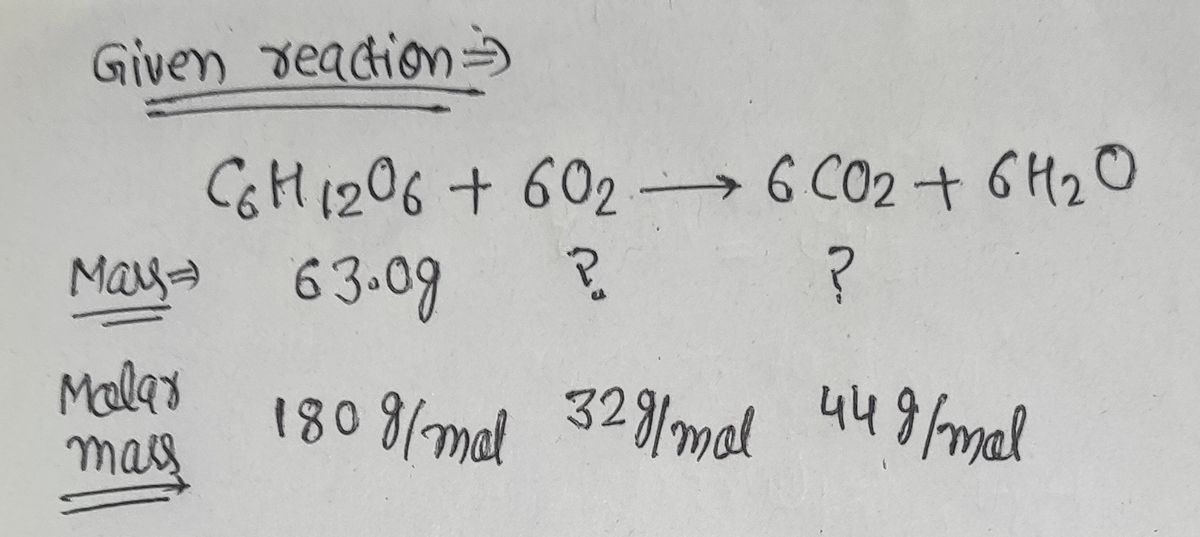 Given reaction ⇒
C6H12O6 + 6O2 → 6CO2 + 6H2O
Mass ⇒ 63.0g ? ?
Molar
mass 180 g/mol 32g/mol 44 g/mol